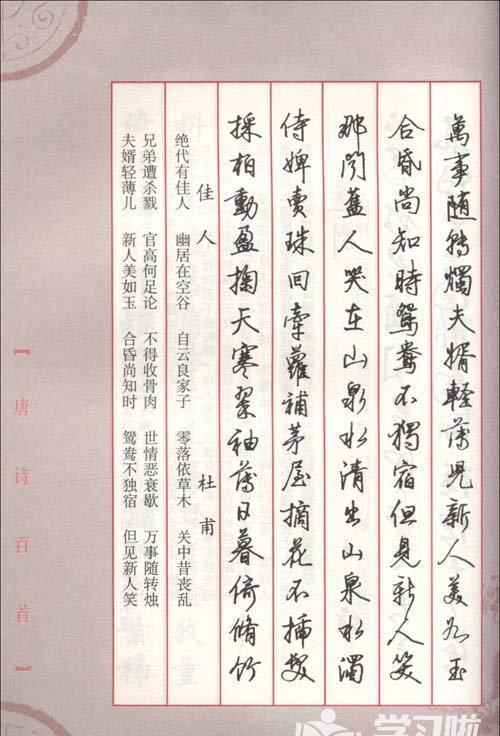 萬事随轉燭夫婿輕薄兒新人美如玉
合昏尚知時鴛鴦不獨宿但見新人笑
那聞舊人哭在山泉水清出山泉水濁
侍婢賣珠回牽蘿補茅屋摘花不插髮
採柏動盈掬天寒翠袖薄日暮倚脩竹
佳人 杜甫
绝代有佳人 幽居在空谷 自云良家子 零落依草木 关中昔丧乱
兄弟遭杀戮 官高何足论 不得收骨肉 世情恶衰歇 万事随转烛
夫婿轻薄儿 新人美如玉 合昏尚知时 鸳鸯不独宿 但见新人笑
【唐诗百首】
学习啦